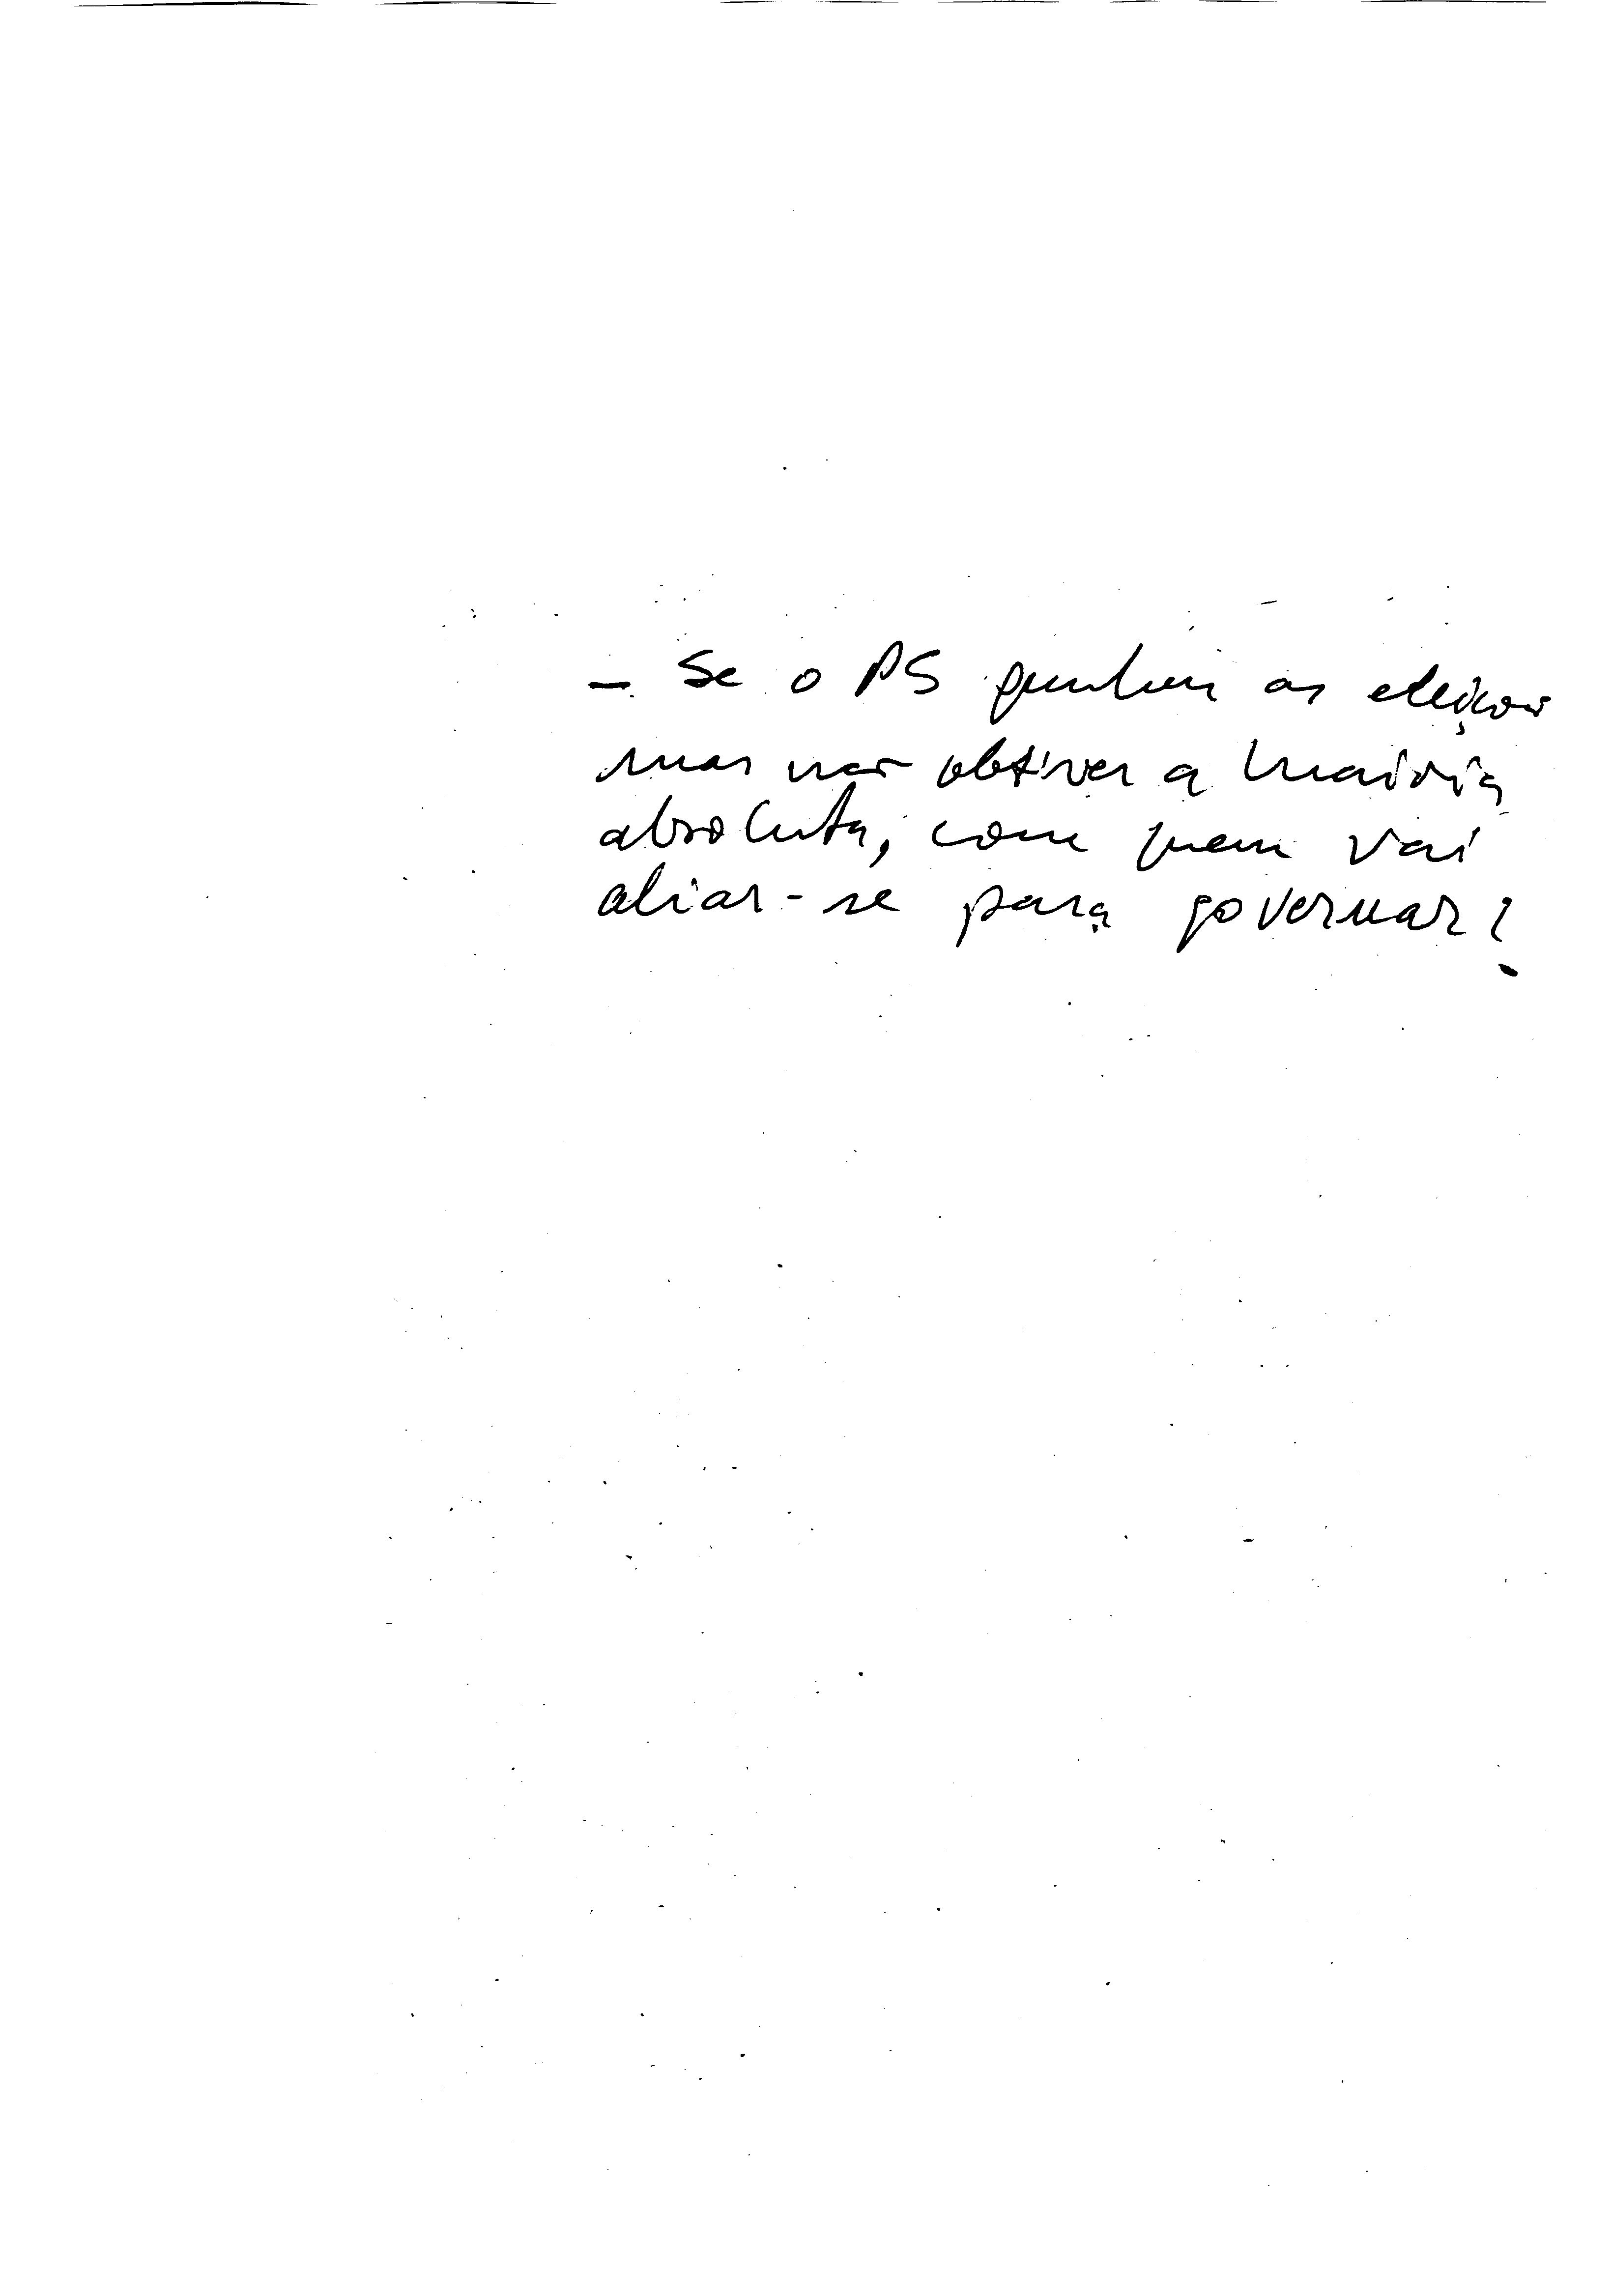 - Se o PS ganhar as eleições
mas não obtiver a maioria
absoluta, com quem vai
aliar-se para governar?